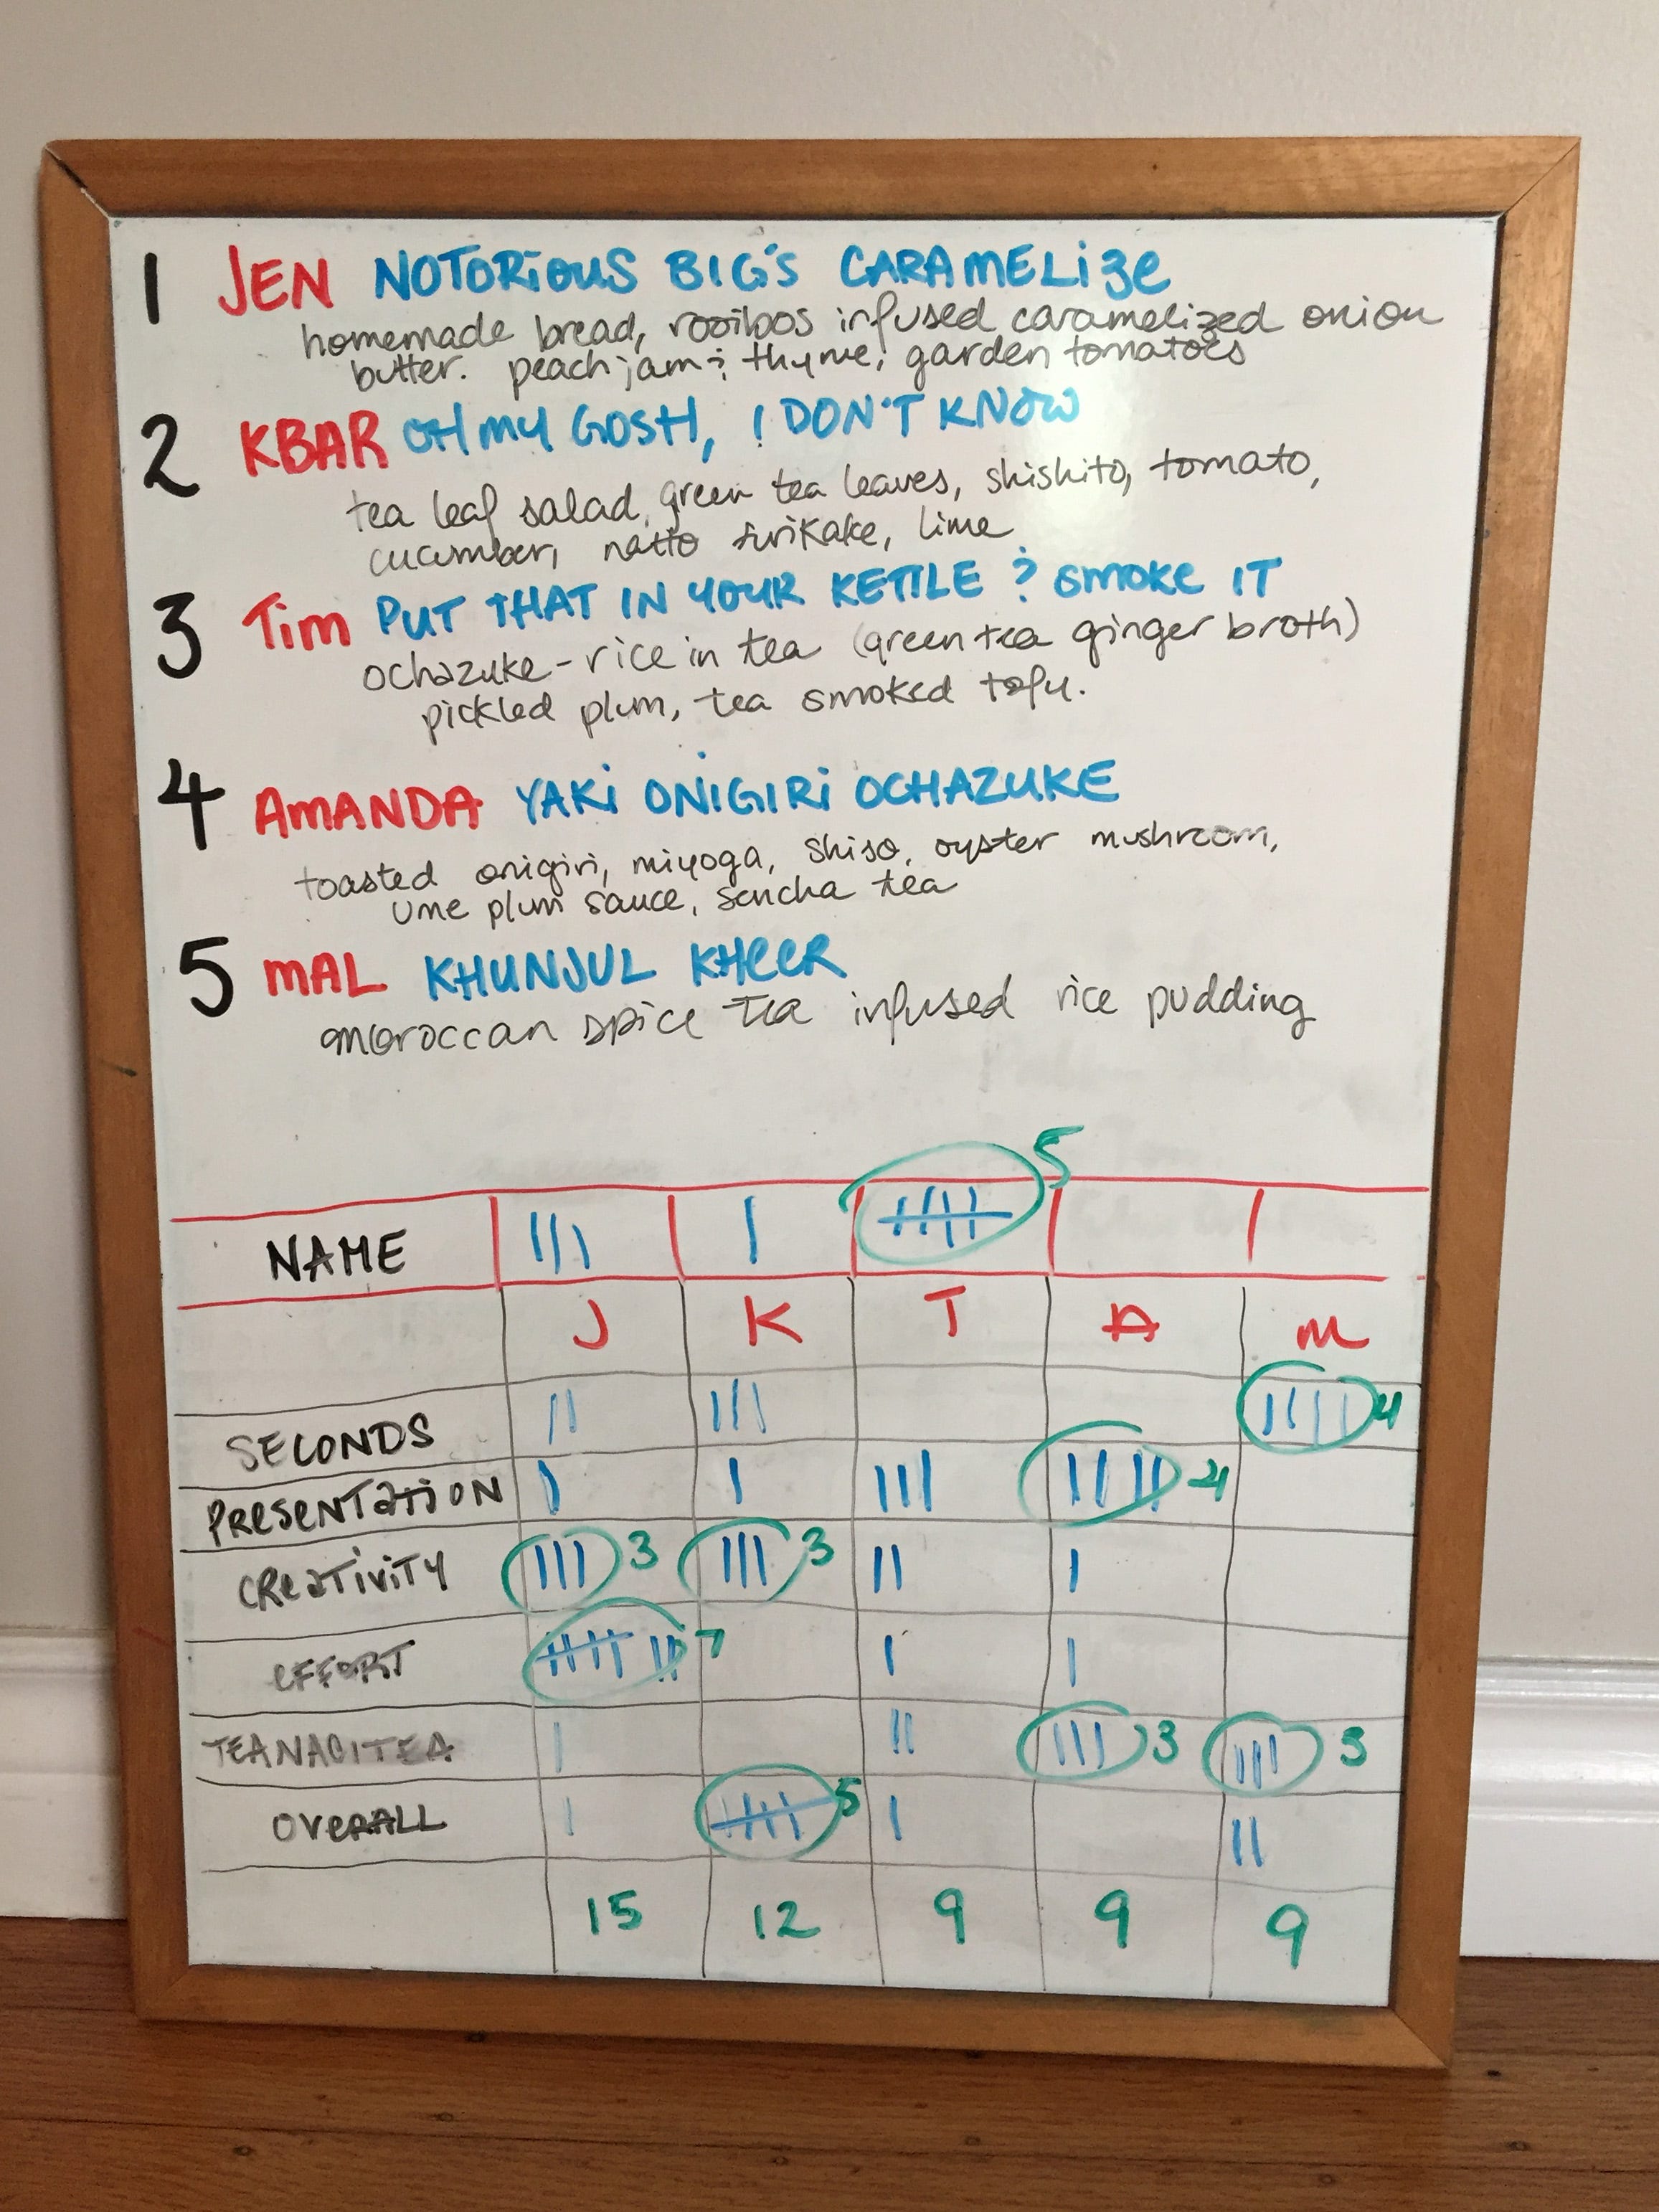 1 JEN NOTORIOUS BIG'S CARAMELIZE
homemade bread, rooibos infused caramelized onion
butter. peach jam & thyme, garden tomatoes
2 KBAR OH MY GOSH, I DON'T KNOW
tea leaf salad, green tea leaves, shishito, tomato,
cucumber, natto furikake, lime
3 Tim PUT THAT IN YOUR KETTLE & SMOKE IT
ochazuke - rice in tea (green tea ginger broth)
pickled plum, tea smoked tofu.
4 AMANDA YAKI ONIGIRI OCHAZUKE
toasted onigiri, miyoga, shiso, oyster mushroom,
ume plum sauce, sencha tea
5 MAL KHUNJUL KHEER
moroccan spice tea infused rice pudding
5
NAME
J K T A M
SECONDS 4
PRESENTATION 4
CREATIVITY 3 3
EFFORT 7
TEANACITEA 3 3
OVERALL 5
15 12 9 9 9